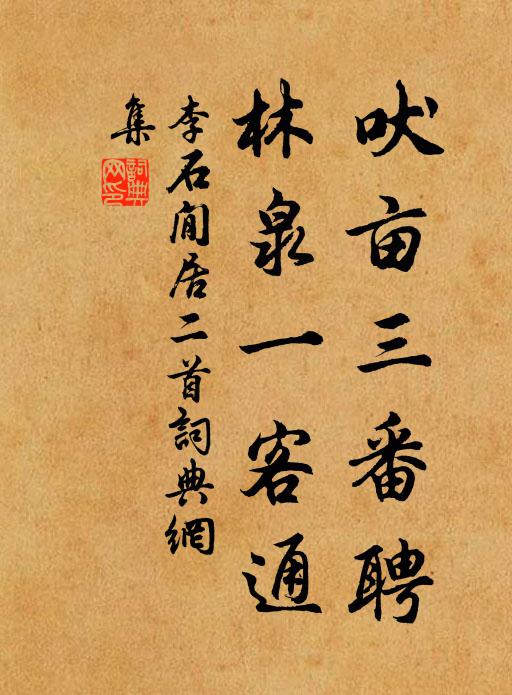 吠亩三番聘
林泉一客通
李石闲居二首詞典網
集
詞典
网印